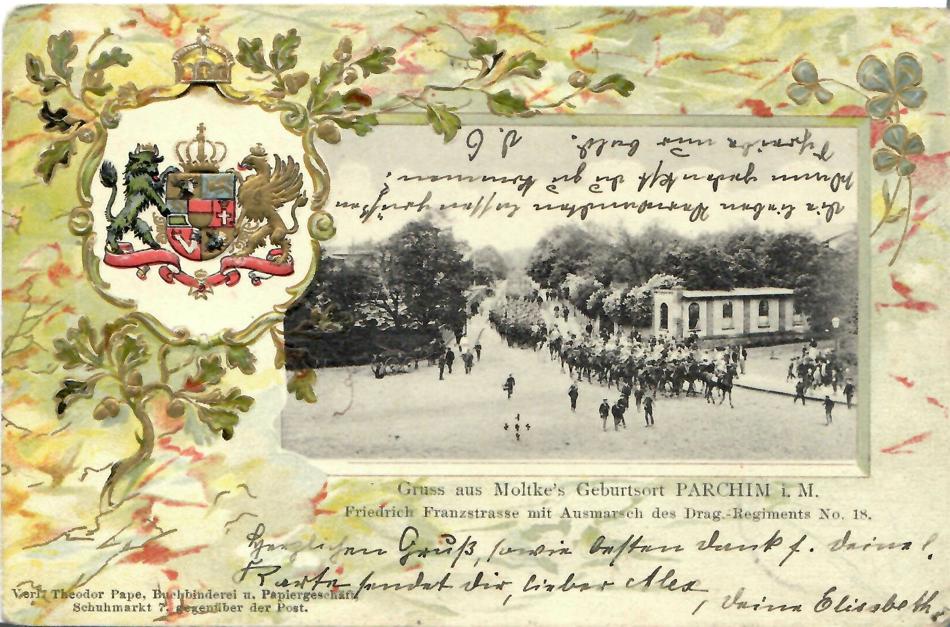 Die lieben Verwandten lassen grüßen
Wann gedenkst du zu kommen?
Schreibe nur bald. D. E
Gruss aus Moltke's Geburtsort PARCHIM i. M.
Friedrich Franzstrasse mit Ausmarsch des Drag.-Regiments No. 18.
Herzlichen Gruß, sowie besten Dank f. deine l.
Karte sendet dir, lieber Alex
, deine Elisabeth.
Verl. Theodor Pape, Buchbinderei u. Papiergeschäft
Schuhmarkt 7. gegenüber der Post.